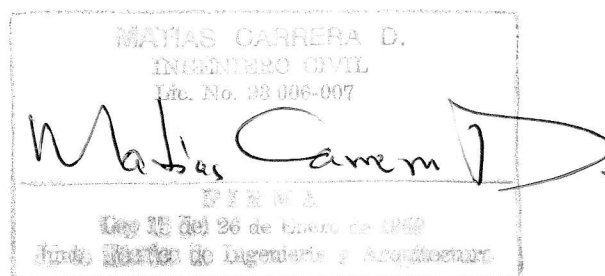 MATIAS CARRERA D.
INGENIERO CIVIL
Lic. No. 93 006-007
Matias Carrera D.
FIRMA
Ley 15 del 26 de Enero de 1959
Junta Técnica de Ingeniería y Arquitectura